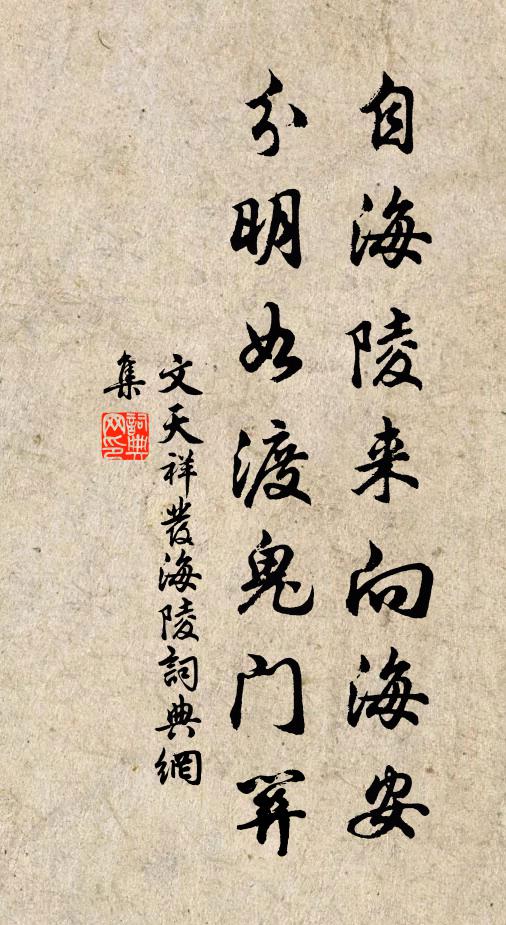 自海陵来向海安
分明如渡鬼门关
文天祥發海陵詞典網
集
詞典
网印